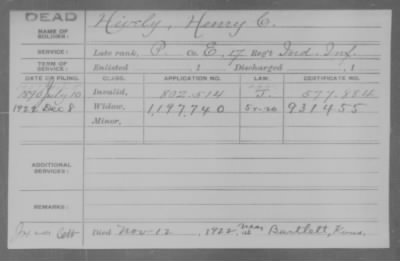 DEAD
NAME OF SOLDIER: Hively, Henry C.
SERVICE: Late rank, P. Co. E, 17 Reg't Ind. Inf.
TERM OF SERVICE: Enlisted , 1 Discharged , 1
DATE OF FILING. CLASS. APPLICATION NO. LAW. CERTIFICATE NO.
1890 July 10 Invalid, 802.514 J. 577.884
1922 Dec 8 Widow, 1,197,740 931455
Minor,
ADDITIONAL SERVICES:
REMARKS:
Died Nov-12, 1922 near at Bartlett, Kans.